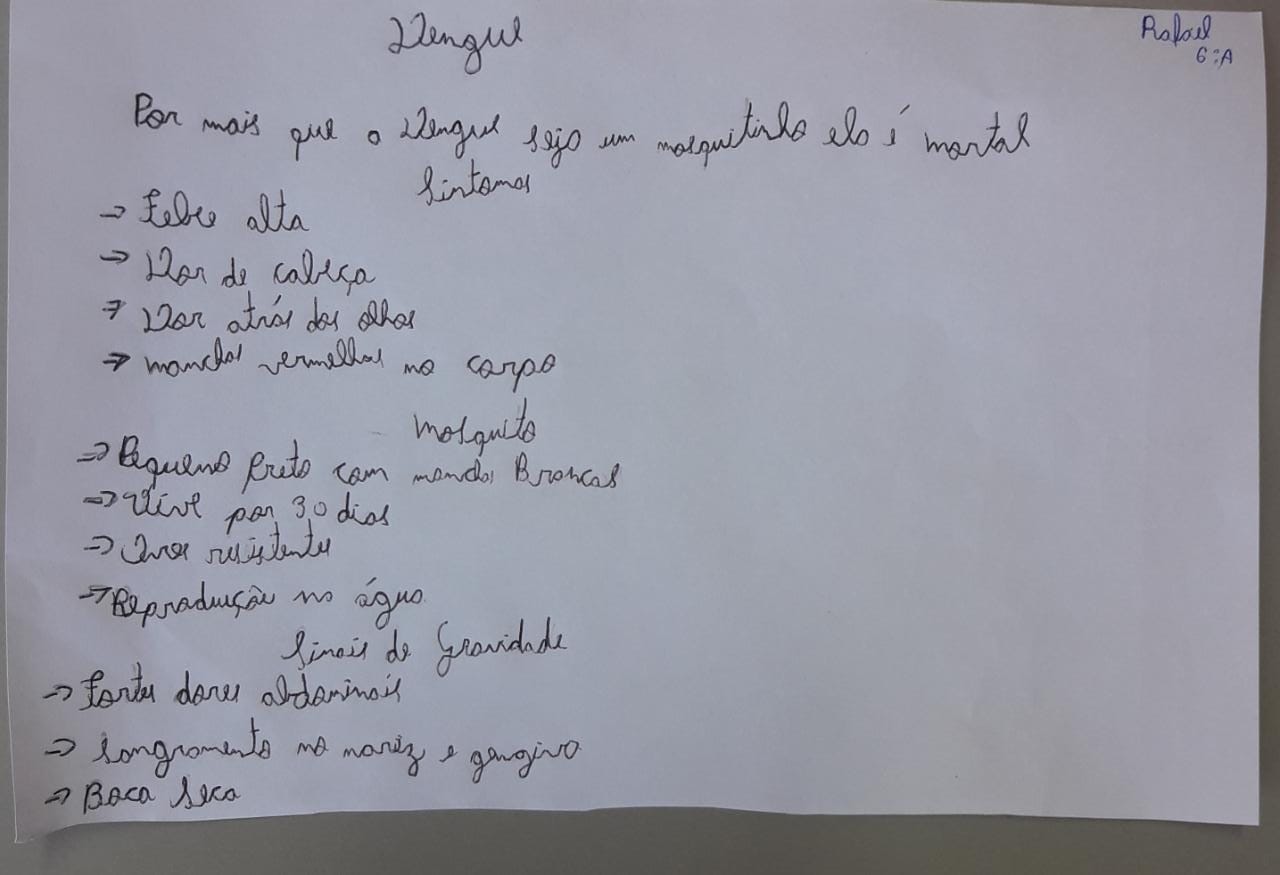 Dengue
Rafael
6:A
Por mais que a Dengue seja um mosquitinho ela é mortal
Sintomas
→ Febre alta
→ Dor de cabeça
→ Dor atrás dos olhos
→ manchas vermelhas no corpo
Mosquito
→ Pequeno Preto com manchas Brancas
→ Vive por 30 dias
→ Ovos resistentes
→ Reprodução na água
Sinais de Gravidade
→ Fortes dores abdominais
→ Sangramento no nariz e gengiva
→ Boca Seca